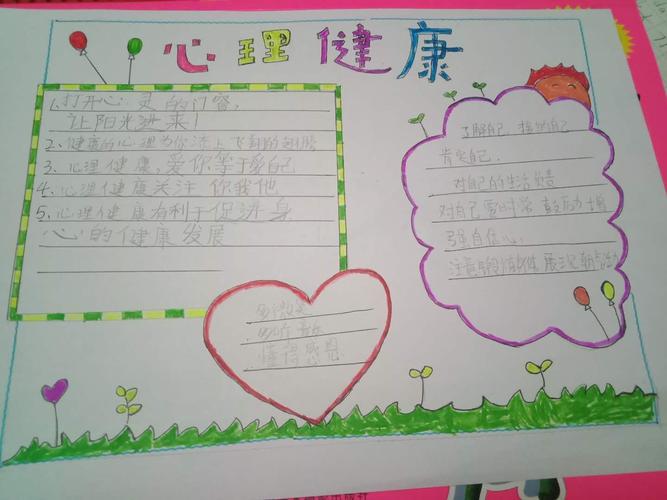 心理健康
1.打开心灵的门窗,
让阳光进来!
2、健康的心理为你添上飞翔的翅膀
3、心理健康,爱你等于爱自己
4、心理健康关注你我他
5、心理健康有利于促进身
心的健康发展
多微笑
多听音乐
懂得感恩
了解自己、接纳自己
肯定自己.
对自己的生活负责
对自己要时常鼓励增
强自信心.
注意